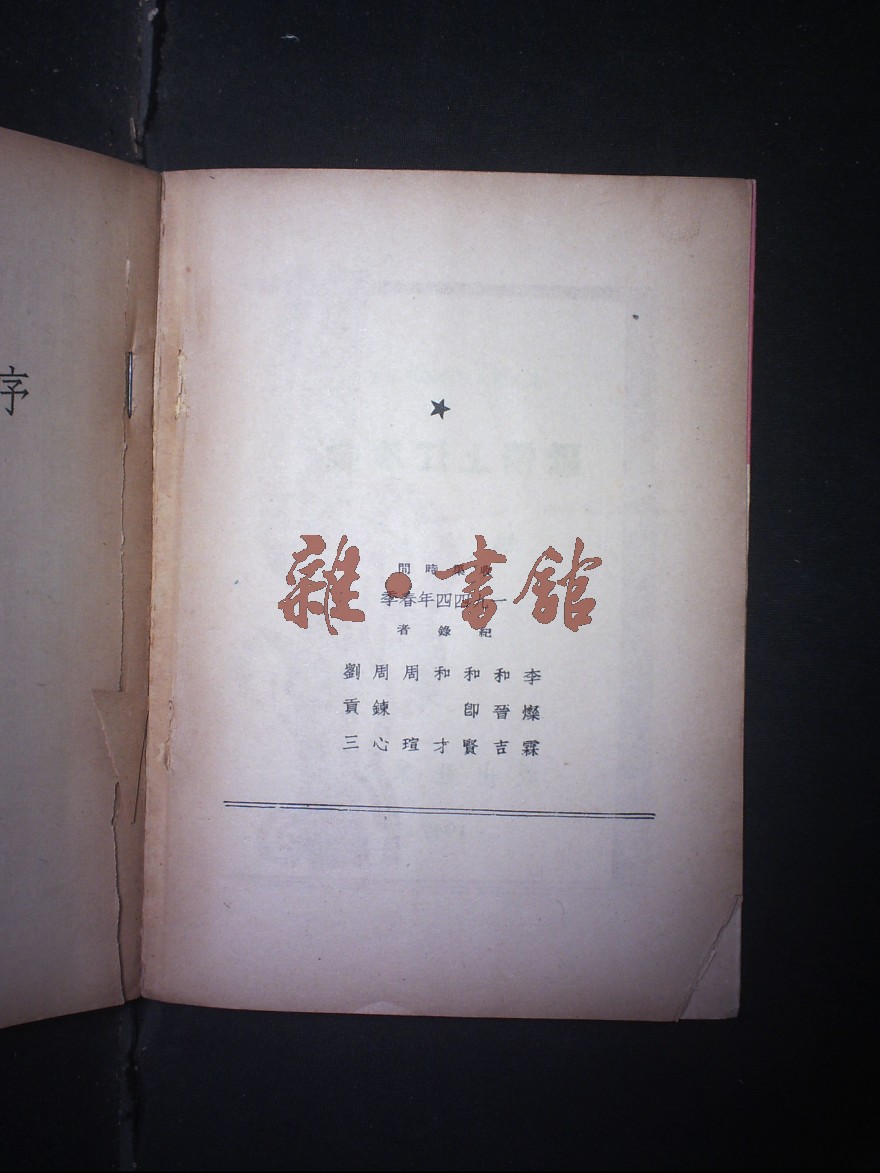 序
雜·書館
收集時間
一九四四年春季
紀錄者
李燦霖
和晉吉
和卽賢
和才
周瑄
周鍊心
劉貢三